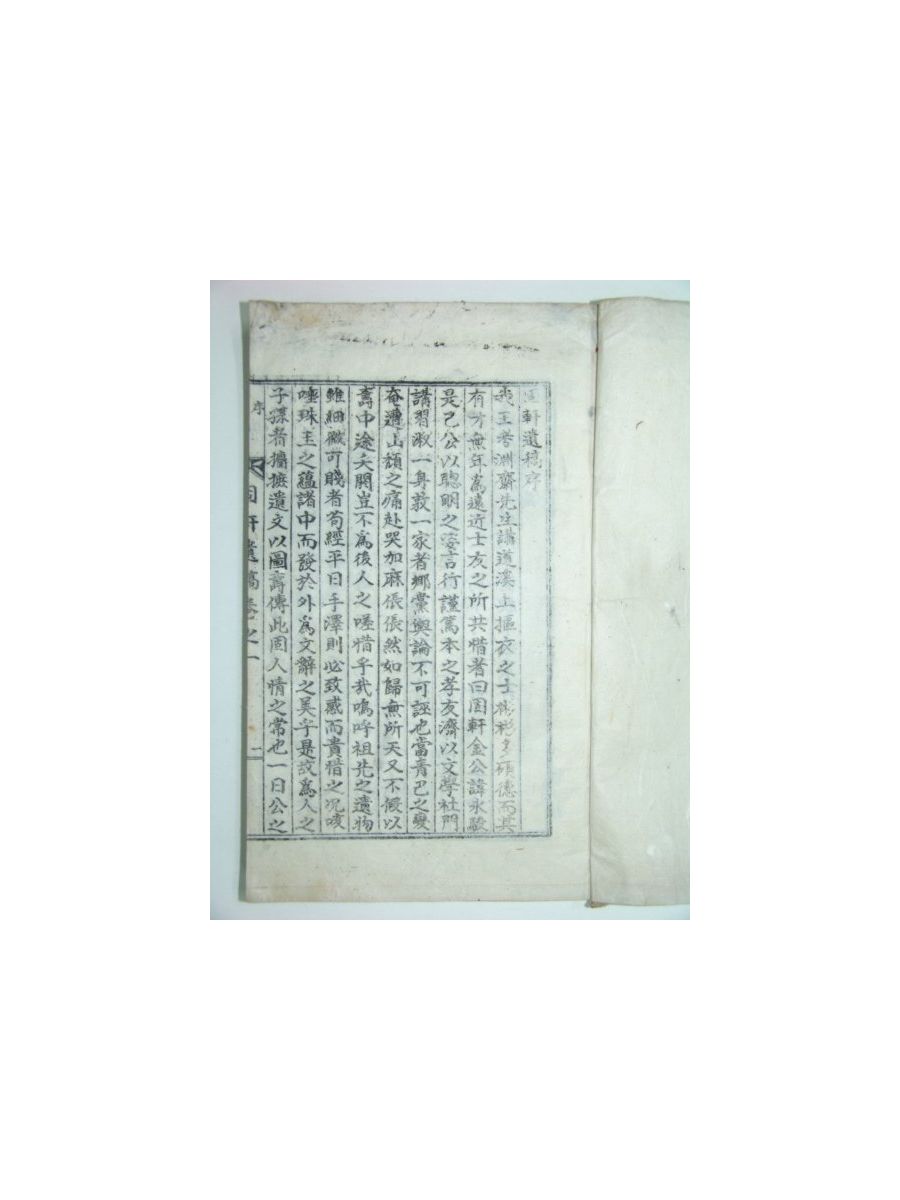 固軒遺稿序
我王考淵齋先生講道溪上摳衣之士彬彬多碩德而其
有才無年爲遠近士友之所共惜者曰固軒金公諱永駿
是已公以聰明之姿言行謹篤本之孝友濟以文學杜門
講習淑一身敎一家者鄕黨輿論不可誣也當靑巴之變
奄遭山頹之痛赴哭加麻倀倀然如歸無所天又不假以
壽中途夭閼豈不爲後人之嗟惜乎哉嗚呼祖先之遺物
雖細微可賤者苟經平日手澤則必致感而貴惜之况咳
唾珠玉之蘊諸中而發於外爲文辭之美乎是故爲人之
子孫者攟摭遺文以圖壽傳此固人情之常也一日公之
序 固軒遺稿卷之一 一